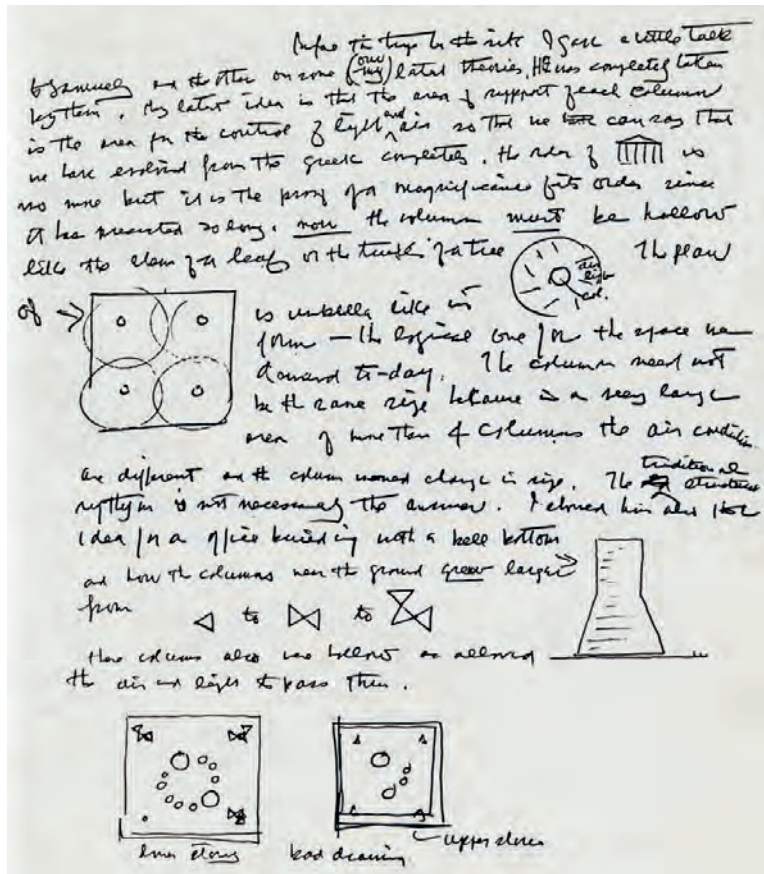 Before the trip to the site I gave a little talk
to Samuely and the other on some (our my) latest theories. He was completely taken
by them. My latest idea is that the area of support of each column
is the area for the control of light and air so that we can say that
we have evolved from the greek completely. The order of is
no more but it is the proof of a magnificance of its order since
it has presented so long. now the column must be hollow
like the stem of a leaf or the trunk of a tree
air
light
col.
The plan
of
is umbrella like in
form — the logical one for the space we
demand to-day. The column need not
be the same size because in a very large
area of more than 4 columns the air condition
are different and the column would change in size. The traditional structure
rythym is not necessarily the answer. I showed him also
idea for a office building with a bell bottom
and how the columns near the ground grew larger
from
to to
these columns also are hollow and allowed
the air and light to pass thru.
lower storys
bad drawing
upper stories